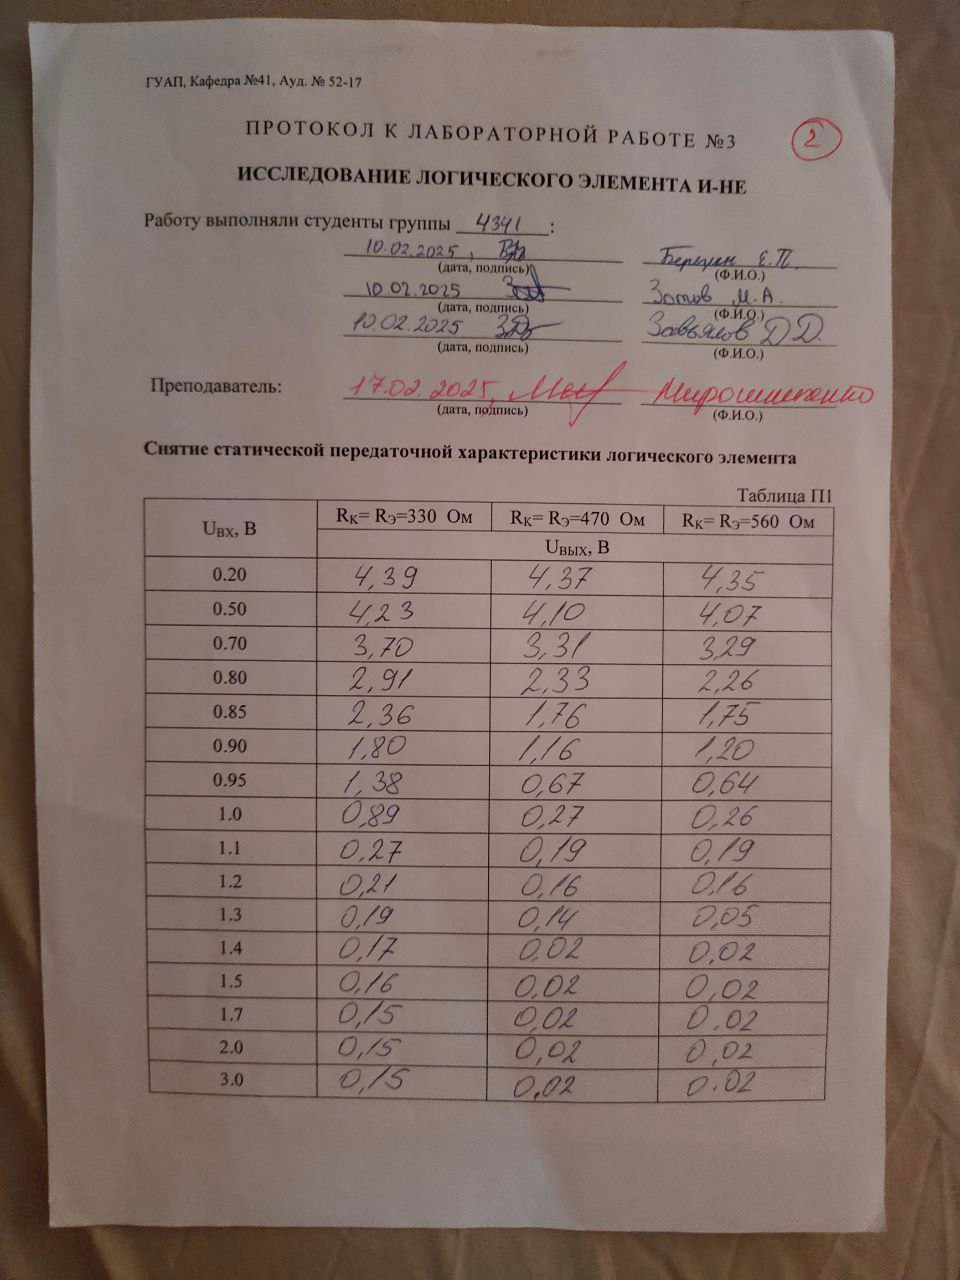 ГУАП, Кафедра №41, Ауд. № 52-17
ПРОТОКОЛ К ЛАБОРАТОРНОЙ РАБОТЕ №3
2
ИССЛЕДОВАНИЕ ЛОГИЧЕСКОГО ЭЛЕМЕНТА И-НЕ
Работу выполняли студенты группы 4341 :
10.02.2025, Е.П.
(дата, подпись) (Ф.И.О.)
10.02.2025 Зотов М.А.
(дата, подпись) (Ф.И.О.)
10.02.2025 Завьялов Д.Д.
(дата, подпись) (Ф.И.О.)
Преподаватель: 17.02.2025, Мирошниченко
(дата, подпись) (Ф.И.О.)
Снятие статической передаточной характеристики логического элемента
Таблица П1
UВХ, В RК= RЭ=330 Ом RК= RЭ=470 Ом RК= RЭ=560 Ом
UВЫХ, В
0.20 4,39 4,37 4,35
0.50 4,23 4,10 4,07
0.70 3,70 3,31 3,29
0.80 2,91 2,33 2,26
0.85 2,36 1,76 1,75
0.90 1,80 1,16 1,20
0.95 1,38 0,67 0,64
1.0 0,89 0,27 0,26
1.1 0,27 0,19 0,19
1.2 0,21 0,16 0,16
1.3 0,19 0,14 0,05
1.4 0,17 0,02 0,02
1.5 0,16 0,02 0,02
1.7 0,15 0,02 0.02
2.0 0,15 0,02 0,02
3.0 0,15 0,02 0.02